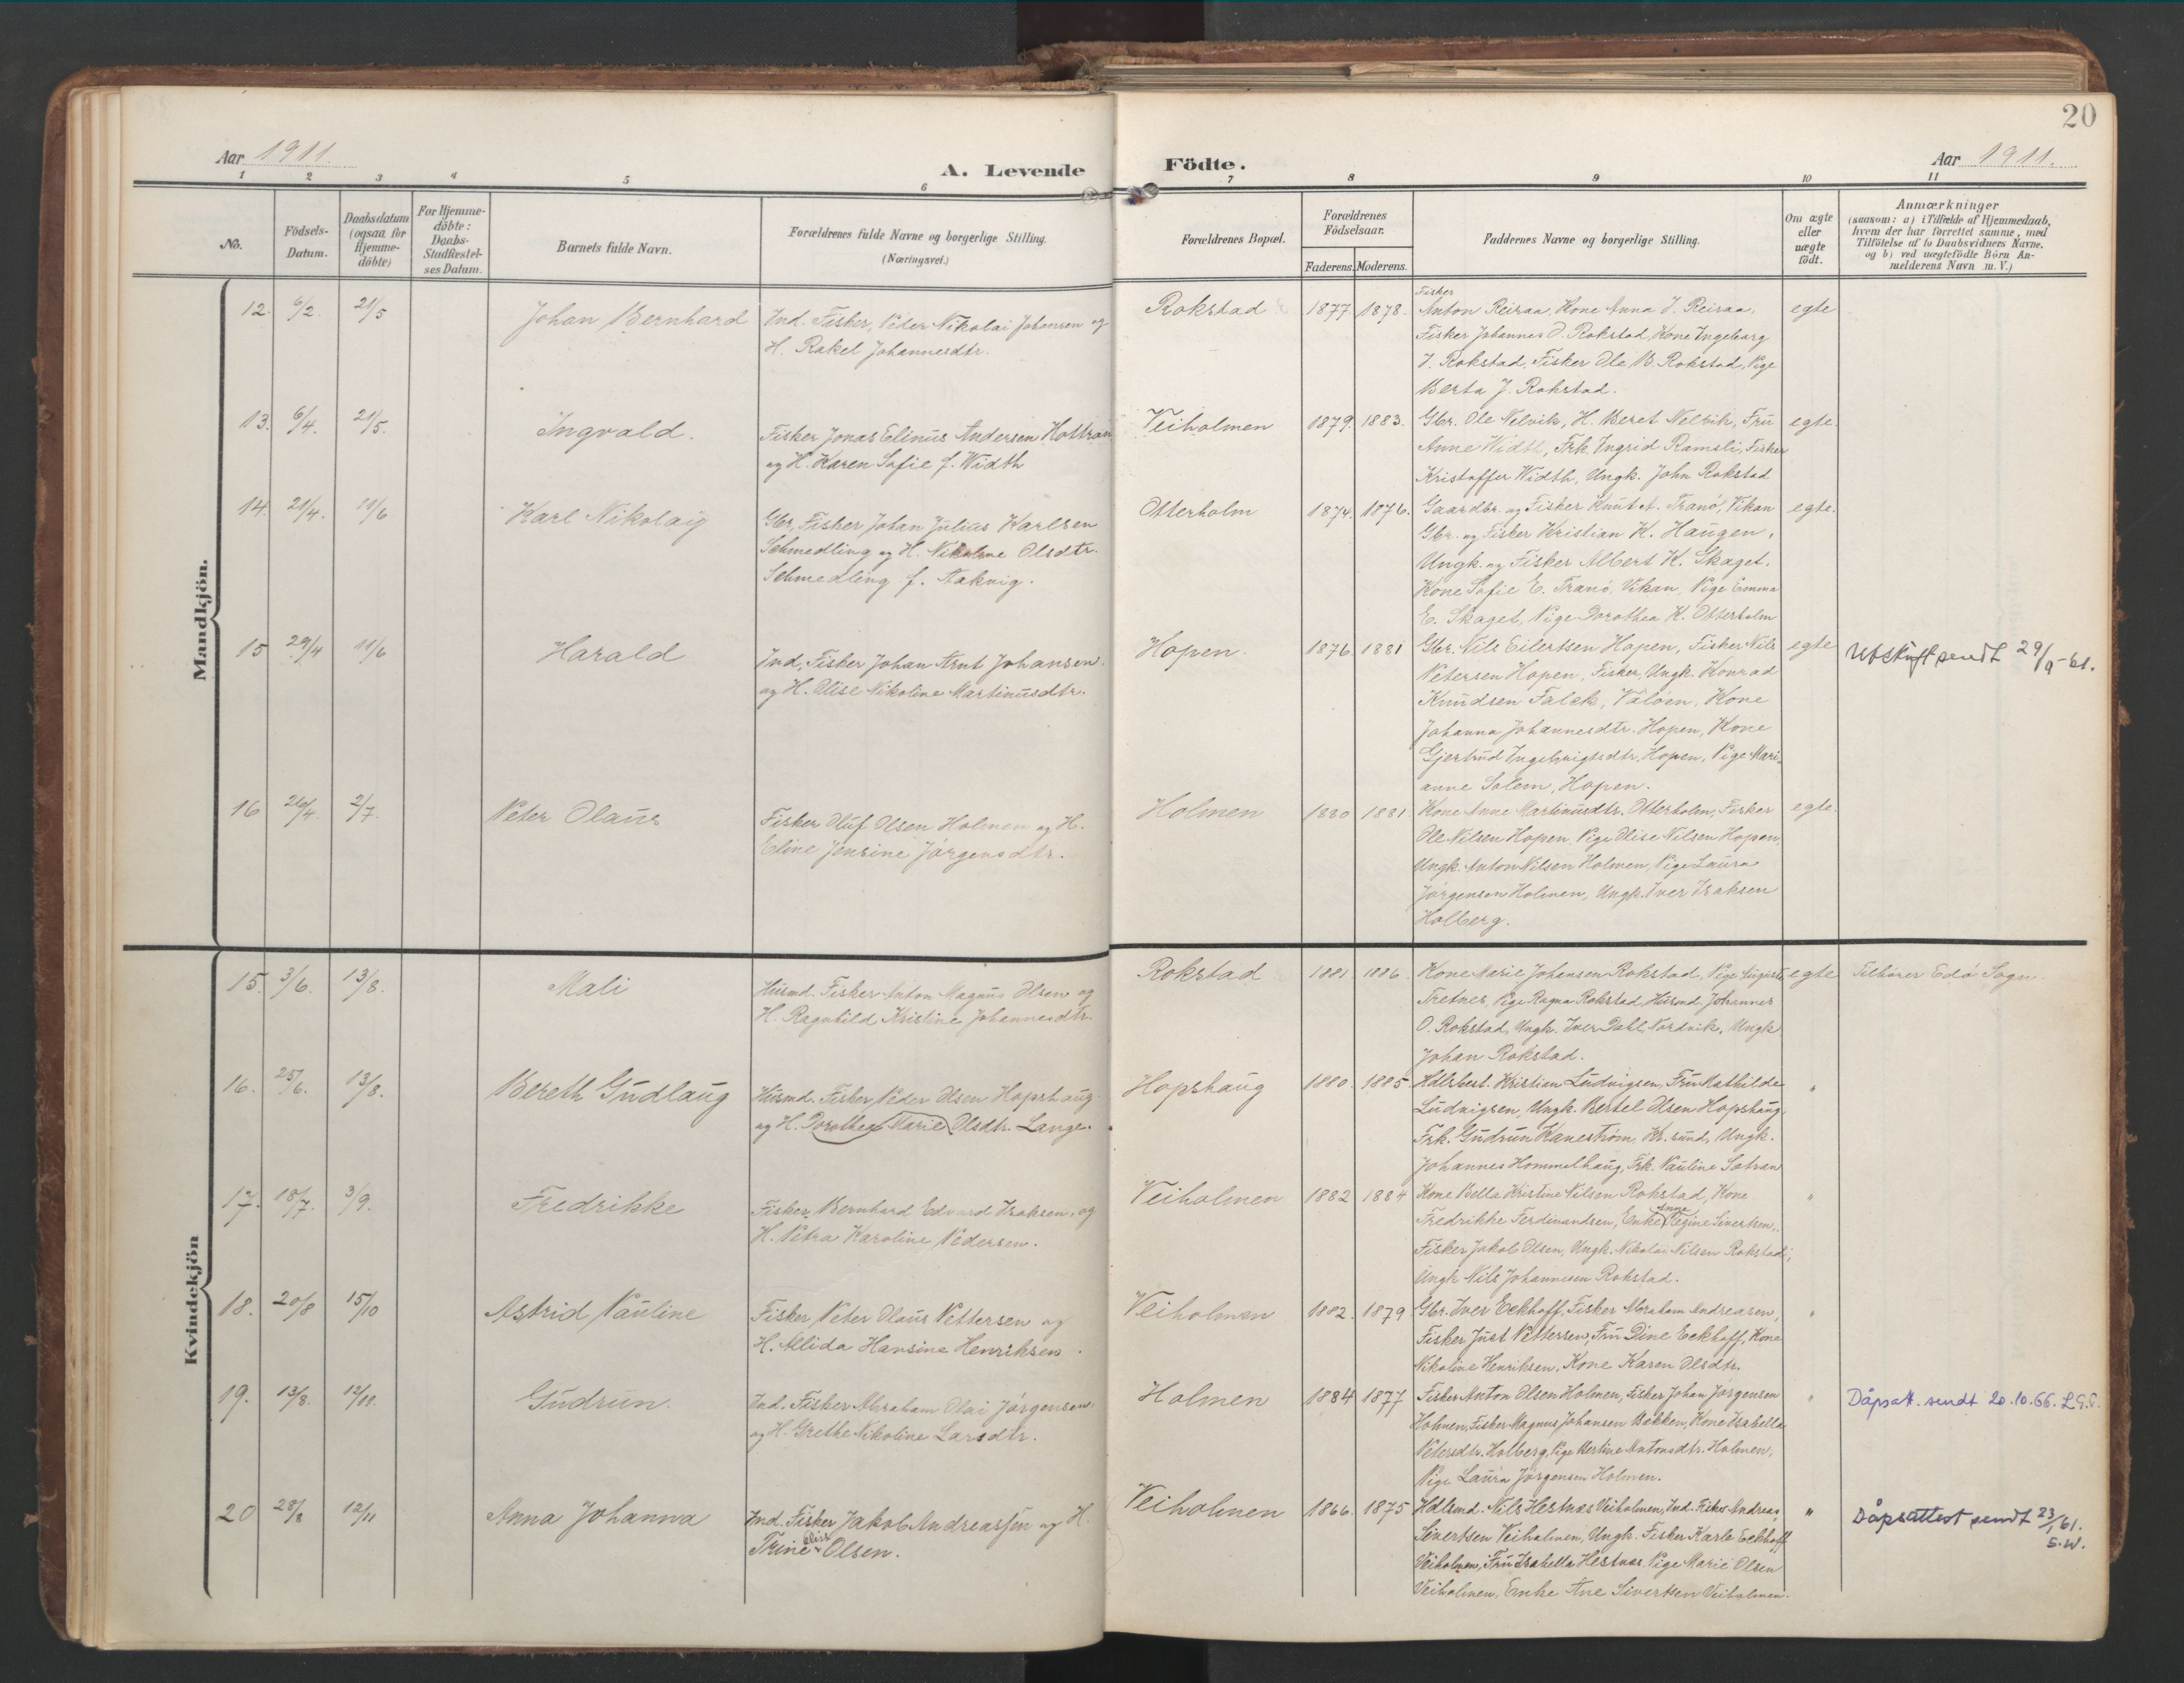 20
Aar 1911.
A. Levende
Födte.
Aar 1911.
1 2 3 4 5 6 7 8 9 10 11
No.
Födsels-
Datum.
Daabsdatum
(ogsaa for
Hjemme-
döbte)
For Hjemme-
döbte:
Daabs-
Stadfestel-
ses Datum.
Barnets fulde Navn.
Forældrenes fulde Navne og borgerlige Stilling.
(Næringsvei.)
Forældrenes Bopæl.
Forældrenes
Födselsaar.
Faderens. Moderens.
Faddernes Navne og borgerlige Stilling.
Om ægte
eller
uægte
födt.
Anmærkninger
(saasom: a) i Tilfælde af Hjemmedaab,
hvem der har forrettet samme, med
Tilföielse af to Daabsvidners Navne.
og b) ved uægtefödte Börn An-
melderens Navn m. V.)
Mandkjön.
12. 6/2. 21/5 Johan Bernhard
Ind. Fisker, Peder Nikolai Johansen og
H. Rakel Johannesdtr.
Rokstad 1877. 1878.
Fisker
Anton Reiraa, Kone Anna J. Reiraa,
Fisker Johannes O. Rokstad, Kone Ingeborg
J. Rokstad, Fisker Ole B. Rokstad, Pige
Berta J. Rokstad.
egte
13. 6/4. 21/5. Ingvald.
Fisker Jonas Elinus Andersen
og H. Karen Sofie f. Width
Veiholmen 1879. 1883.
Gbr. Ole Nelvik, H. Beret Nelvik, Fru
Anne Width, Frk. Ingrid Ramsli, Fisker
Kristoffer Width, Ungk. John Rokstad
egte.
14. 21/4. 11/6 Karl Nikolay
Gbr, Fisker Johan Julius Karlsen
Schmedling og H. Nikoline Olsdtr.
Schmedling f.
Otterholm 1874. 1876.
Gaardbr. og Fisker Knut A. Tranö, Vikan
Gbr. og Fisker Kristian K. Haugen,
Ungk. og Fisker Albert K. Skaget,
Kone Sofie E. Tranö, Vikan, Pige Emma
E. Skaget, Pige Dorothea K. Otterholm
egte.
15 29/4 11/6 Harald
Ind, Fisker Johan Arnt Johansen.
og H. Elise Nikoline Martinusdtr.
Hopen. 1876 1881
Gbr. Nils Eilertsen Hopen, Fisker Nils
Petersen Hopen, Fisker, Ungk. Konrad
Knudsen Falek, Valöen, Kone
Johanna Johannesdtr. Hopen, Kone
Gjertrud Ingebrigtsdtr, Hopen, Pige Mari-
anne Solem, Hopen.
egte
Utskrift sendt 29/9-61.
16 26/4. 2/7. Peter Olaus
Fisker Oluf Olsen Holmen og H.
Eline Jensine Jörgensdtr.
Holmen 1880 1881.
Kone Anne Martinusdtr. Otterholm, Fisker
Ole Nilsen Hopen, Pige Elise Nilsen Hopen,
Ungk. Anton Nilsen Holmen, Pige Laura
Jörgensen Holmen, Ungk. Iver Isaksen
Holberg.
egte.
Kvindekjön
15. 3/6. 13/8. Mali
Husmd. Fisker Anton Magnus Olsen og
H. Ragnhild Kristine Johannesdtr.
Rokstad 1881 1886.
Kone Marie Johansen Rokstad, Pige Augusta
Tretnes, Pige Ragna Rokstad, Husmd. Johannes
O. Rokstad, Ungk. Iver Dahl Nordvik, Ungk
Johan Rokstad.
egte
Tilhörer Edö Sogn.
16. 25/6. 13/8. Bereth Gudlaug
Husmd. Fisker Peder Olsen Hopshaug
og H. Dorothea Marie Olsdtr. Lange.
Hopshaug 1880. 1885.
Hdlsbest. Kristian Ludvigsen, Fru Mathilde
Ludvigsen, Ungk. Bertel Olsen Hopshaug,
Frk. Gudrun Kanestrøm, Kr.sund, Ungk.
Johannes Hommelhaug, Frk. Pauline Sætran
"
17. 18/7. 3/9. Fredrikke
Fisker, Bernhard Edvard Isaksen, og
H. Petra Karoline Pedersen.
Veiholmen 1882 1884
Kone Bella Kristine Nilsen Rokstad, Kone
Fredrikke Ferdinandsen, Enke Anne Regine Sivertsen,
Fisker Jakob Olsen, Ungk. Nikolai Nilsen Rokstad,
Ungk Nils Johannesen Rokstad.
"
18. 20/8 15/10 Astrid Pauline
Fisker Peter Olaus Pettersen og
H. Alida Hansine Henriksen.
Veiholmen 1882. 1879
Gbr. Iver Eckhoff, Fisker Abraham Andreasen,
Fisker Just Pettersen, Fru Dine Eckhoff, Kone
Nikoline Henriksen, Kone Karen Olsdtr.
"
19. 13/8. 12/11. Gudrun.
Ind. Fisker Abraham Olai Jörgensen.
og H. Grethe Nikoline Larsdtr.
Holmen 1884 1877
Fisker Anton Olsen Holmen, Fisker Johan Jörgensen
Holmen, Fisker Magnus Johansen Bekken, Kone Isabella
Petersdtr. Holberg, Pige Bertine Antonsdtr. Holmen,
Pige Laura Jörgensen Holmen.
"
Dåpsatt. sendt 20.10.66.
20 28/8 12/11 Anna Johanna
Ind. Fisker Jakob Andreassen og H.
Trine Elise Olsen.
Veiholmen 1866. 1875
Hdlsmd. Nils Hestnæs Veiholmen, Ind. Fisker Andreas
Sivertsen Veiholmen, Ungk. Fisker Karle Eckhoff
Veiholmen, Fru Isabella Hestnæs, Pige Marie Olsen
Veiholmen, Enke Ane Sivertsen Veiholmen.
"
Dåpsattest sendt 23/1 61.
S.W.